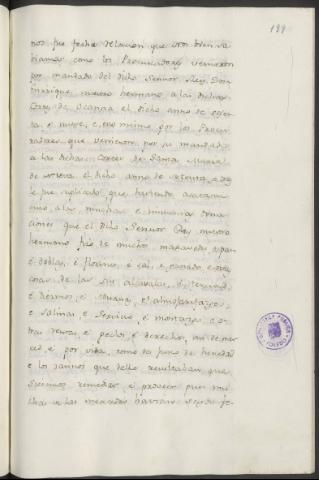 199
nos fue fecha relacion que vos bien sa
biamos como los Procuradores vinieron
por mandado del dicho Señor Rey Don
Enrrique nuestro hermano a las dichas
Cortes de Ocaña el dicho anno de sesen
ta e nueve, e eso mismo por los Procu
radores que vinieron por su mandado
a las dichas Cortes de Santa Maria
de Nieva el dicho anno de setenta e tres
le fue suplicado que haviendo acatamien
to a las muchas e inmensas dona
ciones que el dicho Señor Rey nuestro
hermano fizo de muchos maravedis e pan
e doblas, e florines e sal, e ganado e otras
cosas de las sus alcavalas, e tercias,
e diezmos, e almoxarifazgos,
e salinas, e servicio, e montazgo, e o
tras rentas, e pechos e derechos, asi de mer
ced, e por vida, como de juro de heredad
e los dannos que dello resultaban que
remediar e proveer pues
en las mercedes havian seydo fe
BIBLIOTECA PUBLICA TOLEDO